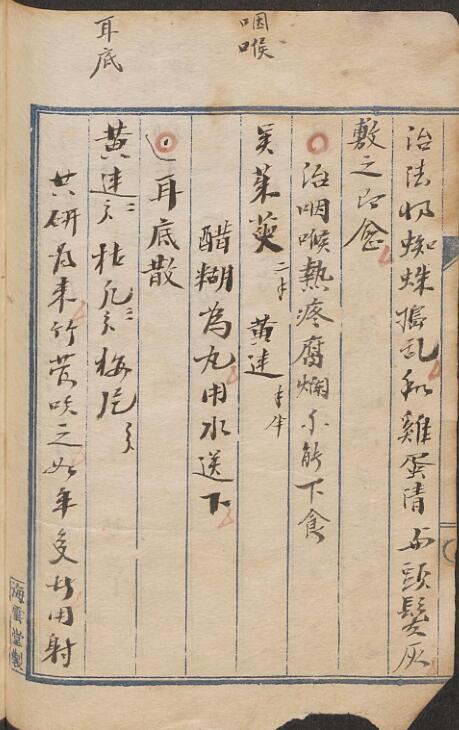 咽喉
耳底
治法将蜘蛛搗乱和雞蛋清或頭髮灰
敷之即愈
治咽喉熱疼腐爛不能下食
吴茱萸二 黄連
醋糊為丸用水送下
耳底散
黄連 枯凡 梅片
共研為末竹管吹之如年多 用射
海雲堂製